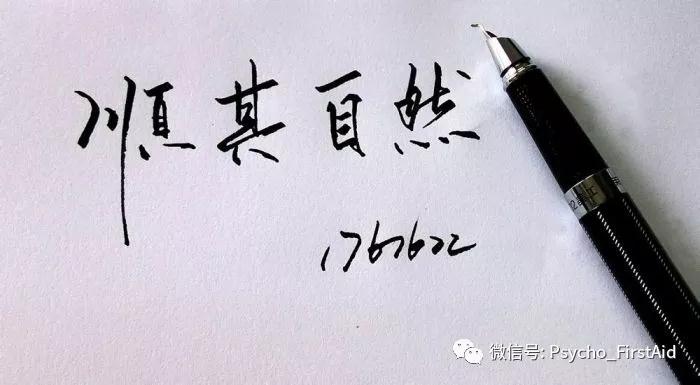 顺其自然
1767622
微信号: Psycho_FirstAid